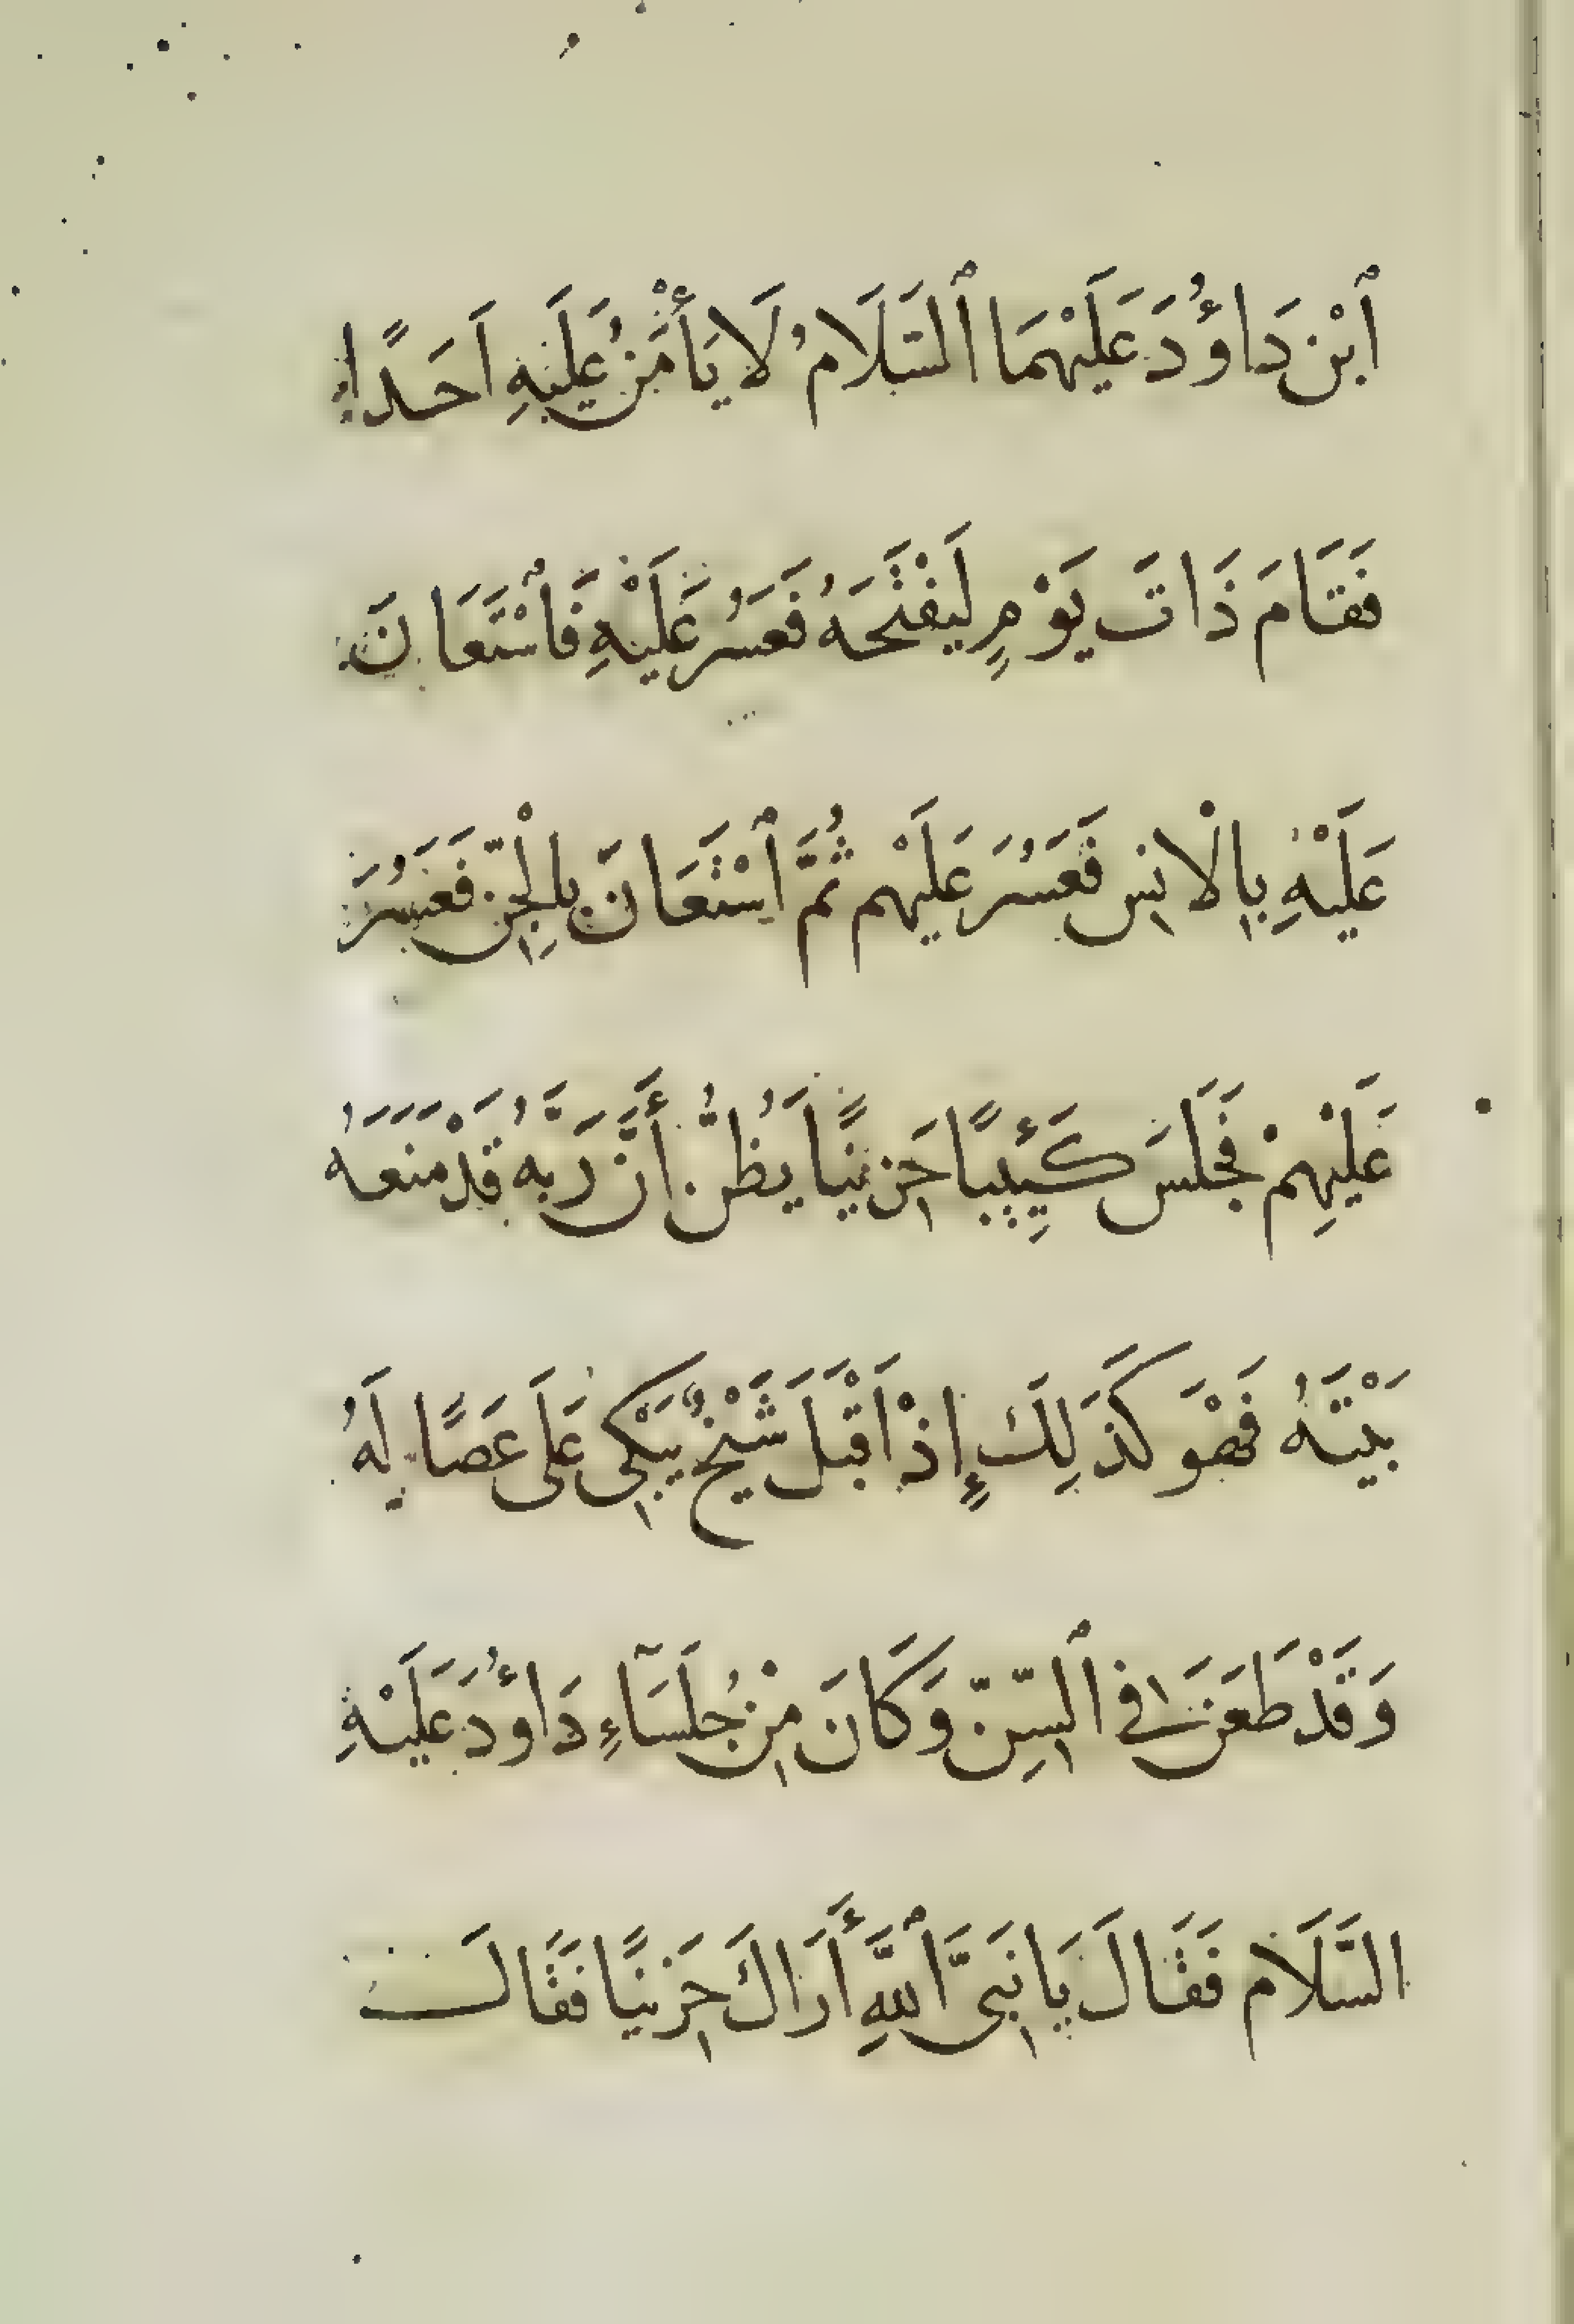 ٱبْن دَاؤُدَ عَلَيْهِمَا ٱلسَّلَامُ لَا يَأْمَنُ عَلَيْهِ اَحَدًا
فَقَامَ ذَاتَ يَوْمٍ لِيَفْتَحَهُ فَعَسُرَ عَلَيْهِ فَٱسْتَعَانَ
عَلَيْهِ بِالْاِنِس فَعَسُرَ عَلَيْهِم ثُمَّ ٱسْتَعَانَ بِالْجِنِّ فَعَسُرَ
عَلَيْهِمْ فَجَلَسَ كَئِيبًا حَزِينًا يَظُنُّ أَنَّ رَبَّهُ قَدْ مَنَعَهُ
بَيْتَهُ فَهْوَ كَذَلِكَ إِذْ اَقْبَلَ شَيْخٌ يَبْكِى عَلَى عَصًا لَهُ
وَقَدْ طَعَنَ فِى ٱلسِّنِّ وَكَانَ مِنْ جُلَسَآءِ دَاؤُدَ عَلَيْهِ
السَّلَام فَقَالَ يَا نَبِىَّ ٱللَّهِ أَرَاكَ حَزِينًا فَقَالَ